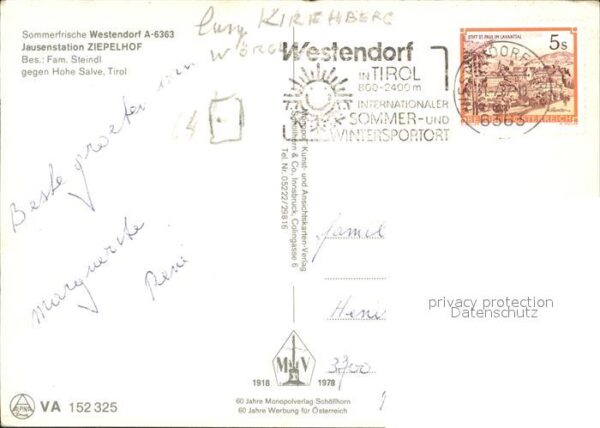 Sommerfrische Westendorf A-6363
Jausenstation ZIEPELHOF
Bes.: Fam. Steindl
gegen Hohe Salve, Tirol
KIRCHBERG
WÖRGL
64
Beste groeten van
Marguerite
René
Westendorf
IN TIROL
800-2400 m
INTERNATIONALER
SOMMER- UND
WINTERSPORTORT
STIFT ST. PAUL IM LAVANTTAL
5 s
REPUBLIK ÖSTERREICH
WESTENDORF
6363
Monopol, Kunst- und Ansichtskarten-Verlag
Schöllhorn & Co., Innsbruck, Colingasse 6
Tel. Nr. 05222/29816
Famil
3700
privacy protection
Datenschutz
M V
1918 1978
60 Jahre Monopolverlag Schöllhorn
60 Jahre Werbung für Österreich
VA 152 325